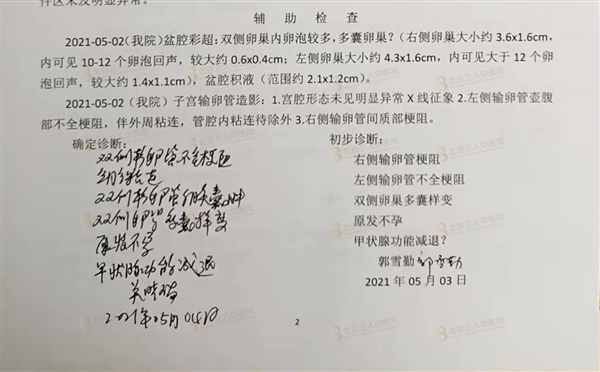 件区未及明显异常。
辅 助 检 查
2021-05-02（我院）盆腔彩超：双侧卵巢内卵泡较多，多囊卵巢？（右侧卵巢大小约 3.6x1.6cm，
内可见 10-12 个卵泡回声，较大约 0.6x0.4cm；左侧卵巢大小约 4.3x1.6cm，内可见大于 12 个卵
泡回声，较大约 1.4x1.1cm），盆腔积液（范围约 2.1x1.2cm）。
2021-05-02（我院）子宫输卵管造影：1.宫腔形态未见明显异常 X 线征象 2.左侧输卵管壶腹
部不全梗阻，伴外周粘连，管腔内粘连待除外 3.右侧输卵管间质部梗阻。
确定诊断：
双侧输卵管不全梗阻
双侧卵巢多囊样变
原发不孕
甲状腺功能减退
2021年05月04日
初步诊断：
右侧输卵管梗阻
左侧输卵管不全梗阻
双侧卵巢多囊样变
原发不孕
甲状腺功能减退？
郭雪勤 郭雪勤
2021 年 05 月 03 日
2
北京卫人中医院